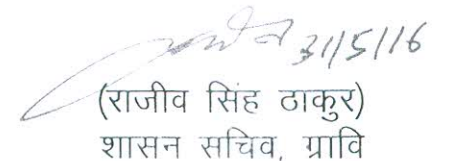 31/5/16
(राजीव सिंह ठाकुर)
शासन सचिव, ग्रावि